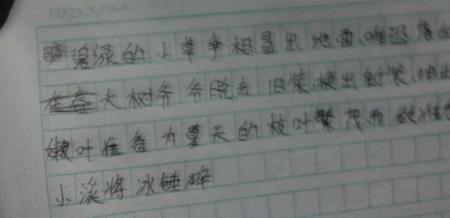 碧绿的小草争相冒出地面，唯恐落
大树爷爷脱去旧装，换出新装，
嫩叶准备为夏天的枝叶繁茂而做准
小溪将冰锤碎